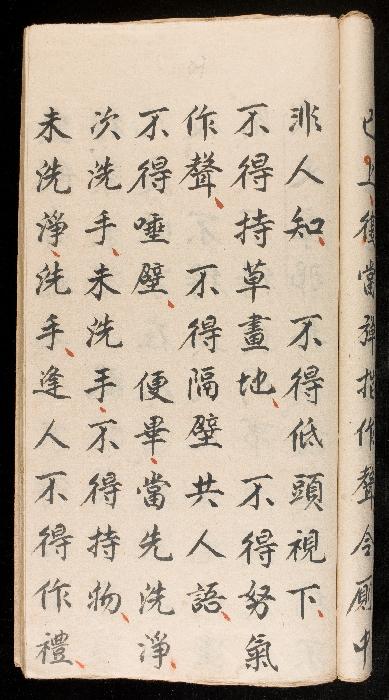 已上復當彈指作聲令厠中
非人知　不得低頭視下
不得持草畫地　不得努氣
作聲　不得隔壁共人語
不得唾壁　便畢當先洗淨
次洗手未洗手不得持物
未洗淨洗手逢人不得作禮